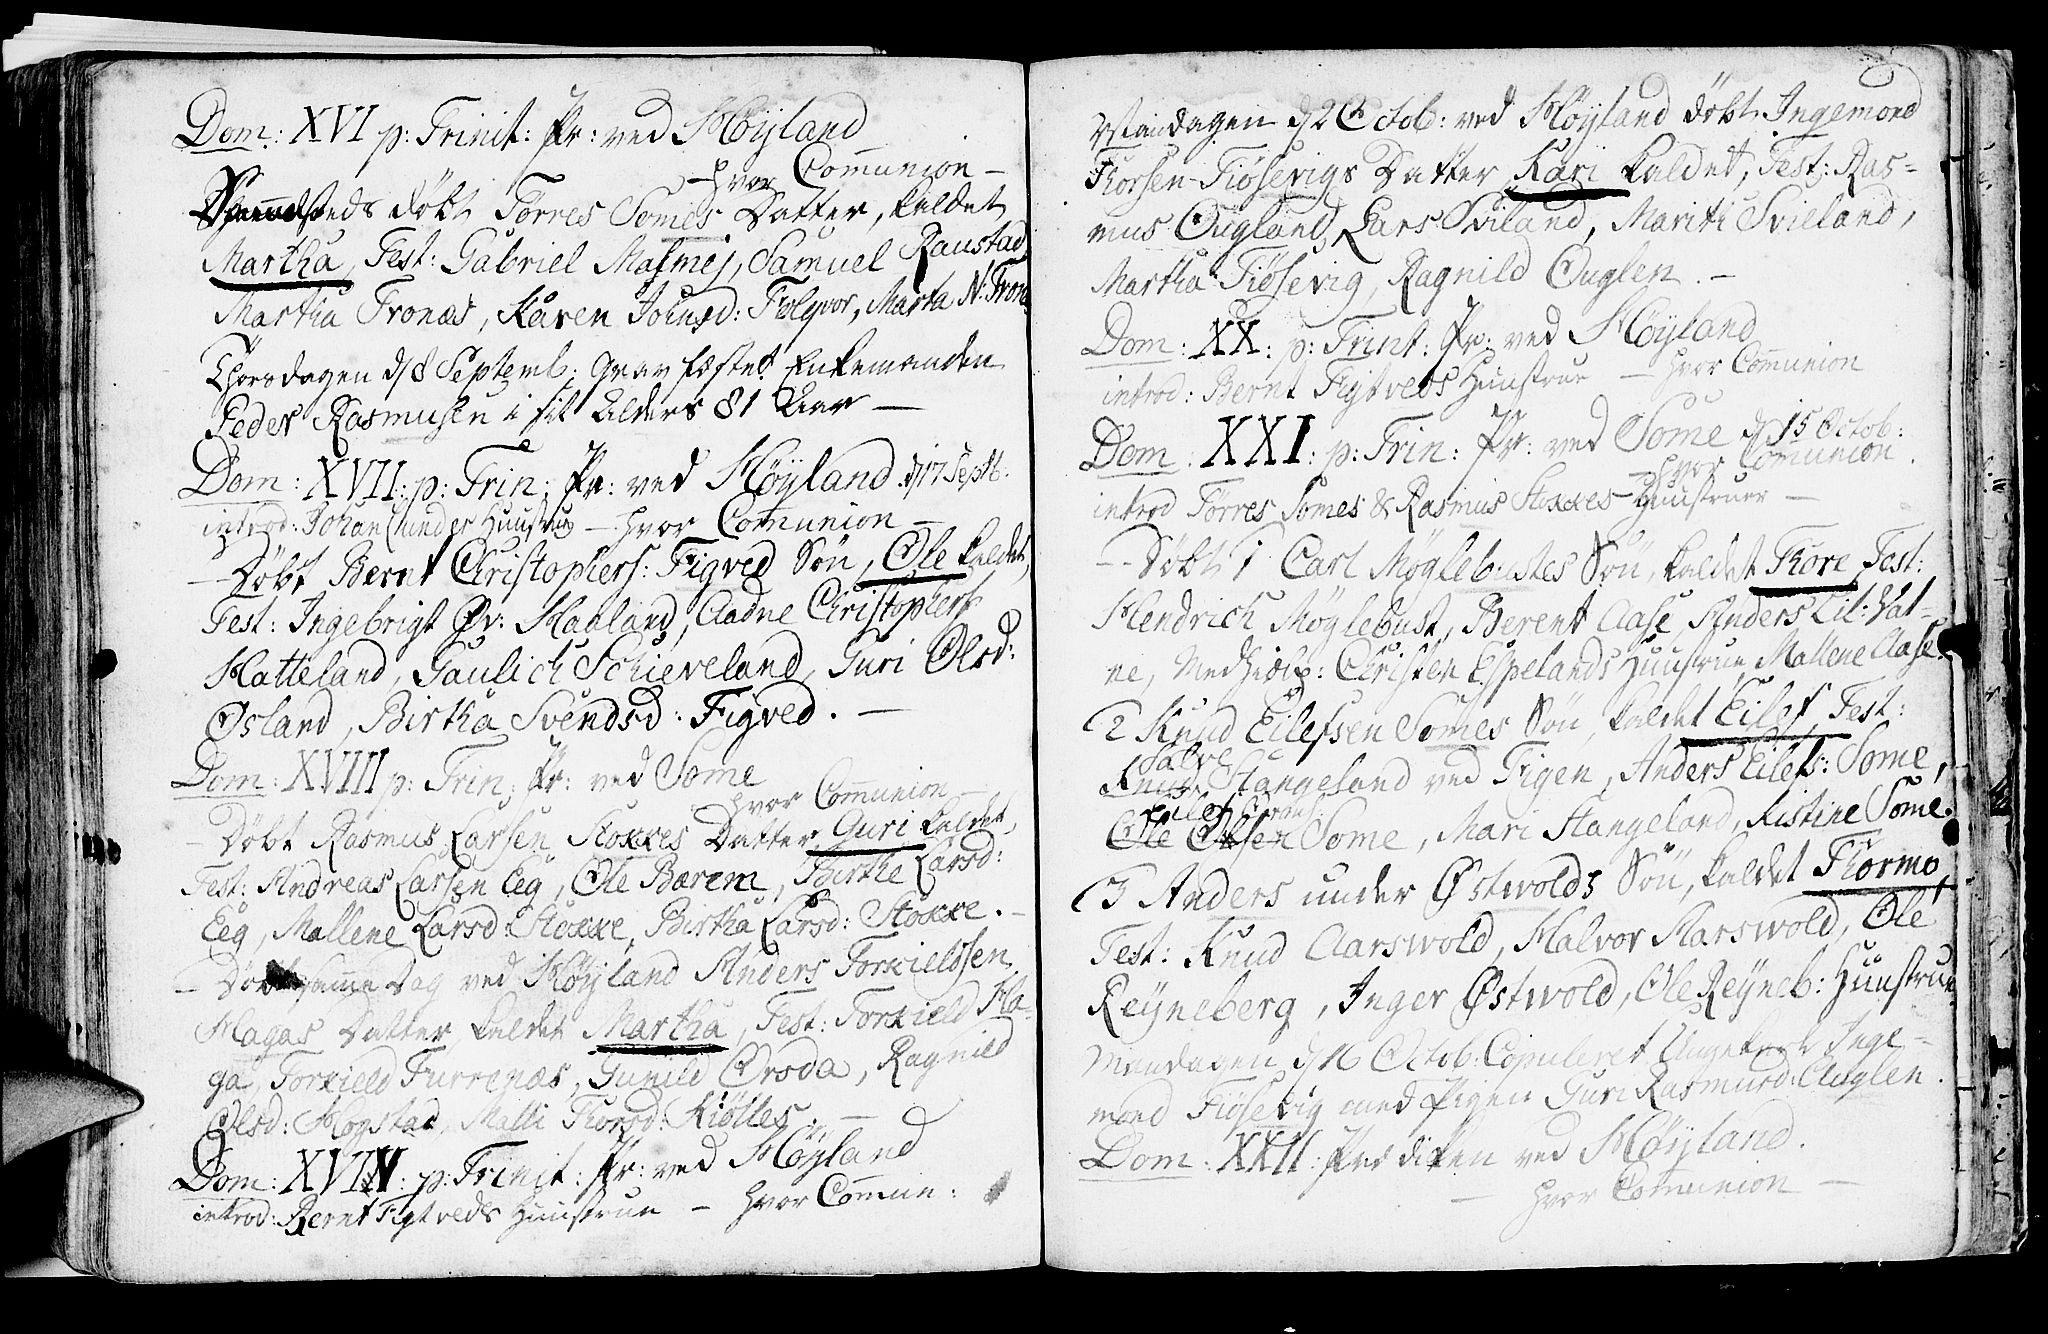 Dom: XVI p: Trinit: Pr: ved Höyland
hvor Com̄union –
döbt Törres Somes Datter, kaldet
Martha, Test: Gabriel Malmej, Samuel Raustad,
Martha Tronæs, Karen Johnsd: Folqvor, Marta N: Tron
Thorsdagen d 8 Septemb: grav fæstet Enkemanden
Peder Rasmusen i sit Alders 81 Aar –
Dom: XVII: p: Trin: Pr: ved Höyland d 17 Septb:
introd: Johan Hunstrue – hvor Com̄union –
– Döbt Bernt Christophers: Figved Sön, Ole kaldet,
Test: Ingebrigt Øv: Haaland, Aadne Christophers
Hatteland, Gaulich Schieveland, Guri Olsd:
Osland, Birtha Svendsd: Figved. –
Dom: XVIII p: Trin: Pr: ved Some
hvor Com̄union –
– Döbt Rasmus Larsen Stokkes Datter, Guri kaldet,
Test: Andreas Larsen Eeg, Ole Bærem, Birthe Larsd:
Eeg, Mallene Larsd: Stokke, Birtha Larsd: Stokke. –
– Döbt sam̄e Dag ved Höyland Anders Torkieldsen
Hagas Datter, kaldet Martha, Test: Torkield Ha-
ga, Torkield Furrenæs, Gunild Orsda, Ragnild
Olsd: Hogstad, Malli Thorsd: Kiölles. –
Dom: XVIIII: p: Trinit: Pr: ved Höyland
introd: Bernt Figtveds Hunstrue – hvor Com̄un:
dagen d 2 Octob: ved Höyland döbt Ingemond
Thorsen Fiösevigs Datter, Kari kaldet, Test: Ras-
mus Ougland, Lars Sviland, Mariti Svieland,
Martha Fiösevig, Ragnild Ouglen. –
Dom: XX: p: Trint: Pr: ved Höyland
introd: Bernt Figtveds Hunstrue – hvor Com̄union
Dom: XXI: p: Trin: Pr: ved Some d 15 Octob:
hvor Com̄union.
introd Törres Somes & Rasmus Stokkes Hunstruer –
– Döbt 1 Carl Möglebustes Sön, kaldet Thore, Test:
Hendrich Möglebust, Berent Aase, Anders Lil: Vat-
ne, Christen Espelands Hunstrue, Mallene Aase.
2 Knud Eilefsen Somes Sön, kaldet Eilef, Test:
Salve
Knud Stangeland ved Tigen, Anders Eilefs: Some,
Ole Olsen Some, Mari Stangeland, Kistine Some.
3 Anders under Østwolds Sön, kaldet Thormo,
Test: Knud Aarswold, Halvor Aarswold, Ole
Reyneberg, Inger Østwold, Ole Reyneb: Hunstrue
Mandagen d 16 Octob: Copuleret Ungekarl Inge-
mond Fiösevig med Pigen Guri Rasmusd: Ouglen.
Dom: XXII: Prediken ved Höyland.
– hvor Com̄union –